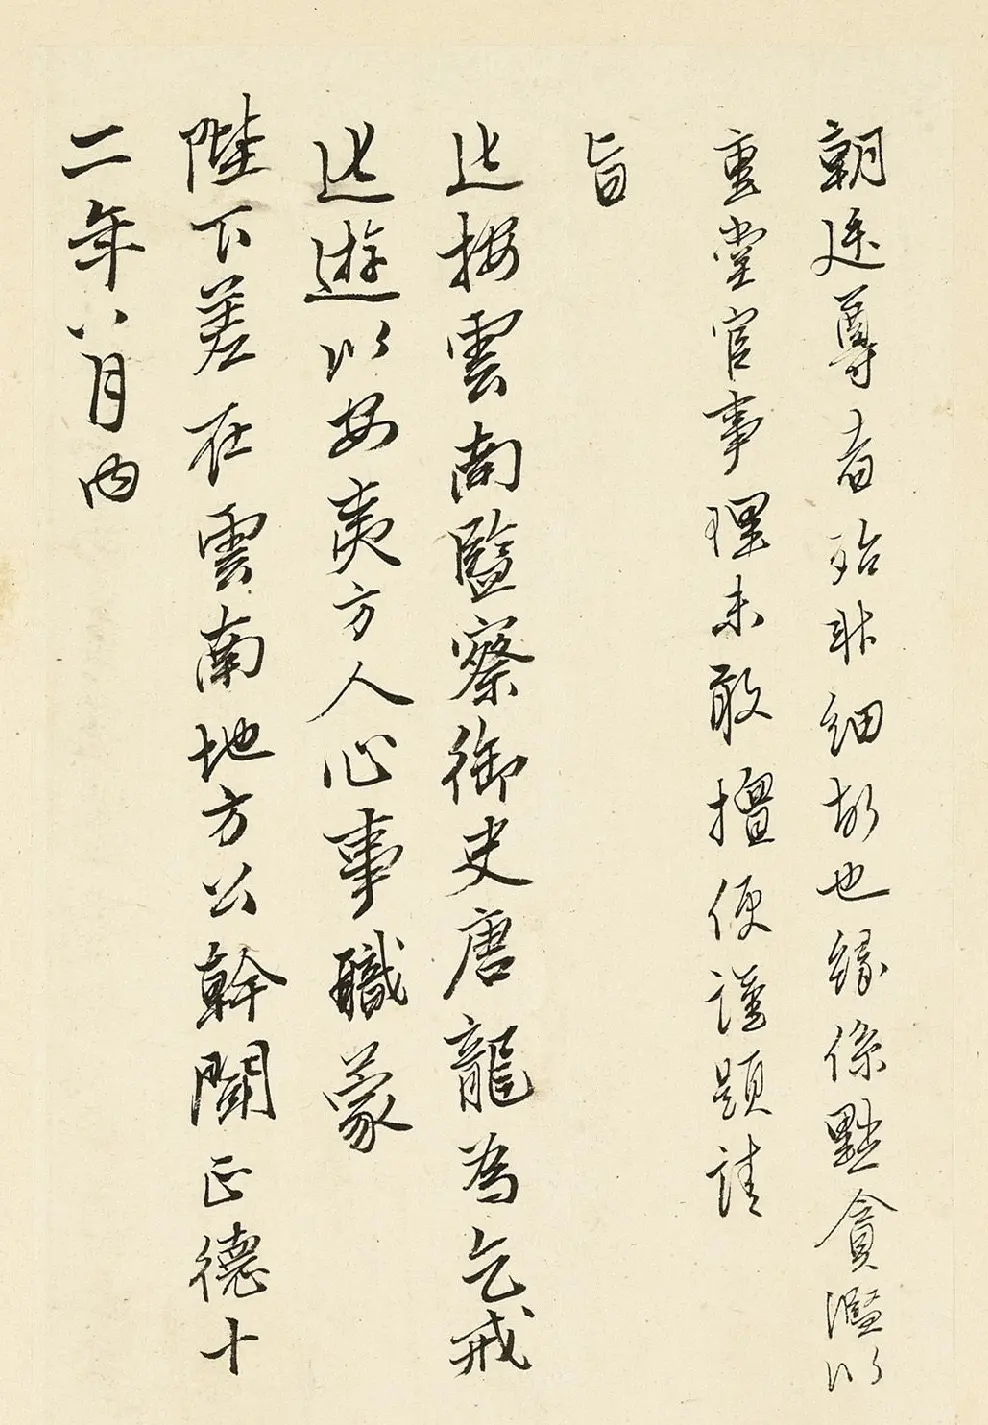 朝廷尊者殆非細故也緣係黜貪濫以
重堂官事理未敢擅便謹題請
旨
巡按雲南監察御史唐龍為乞戒
巡遊以安夷方人心事職蒙
陛下差在雲南地方公幹聞正德十
二年八月內